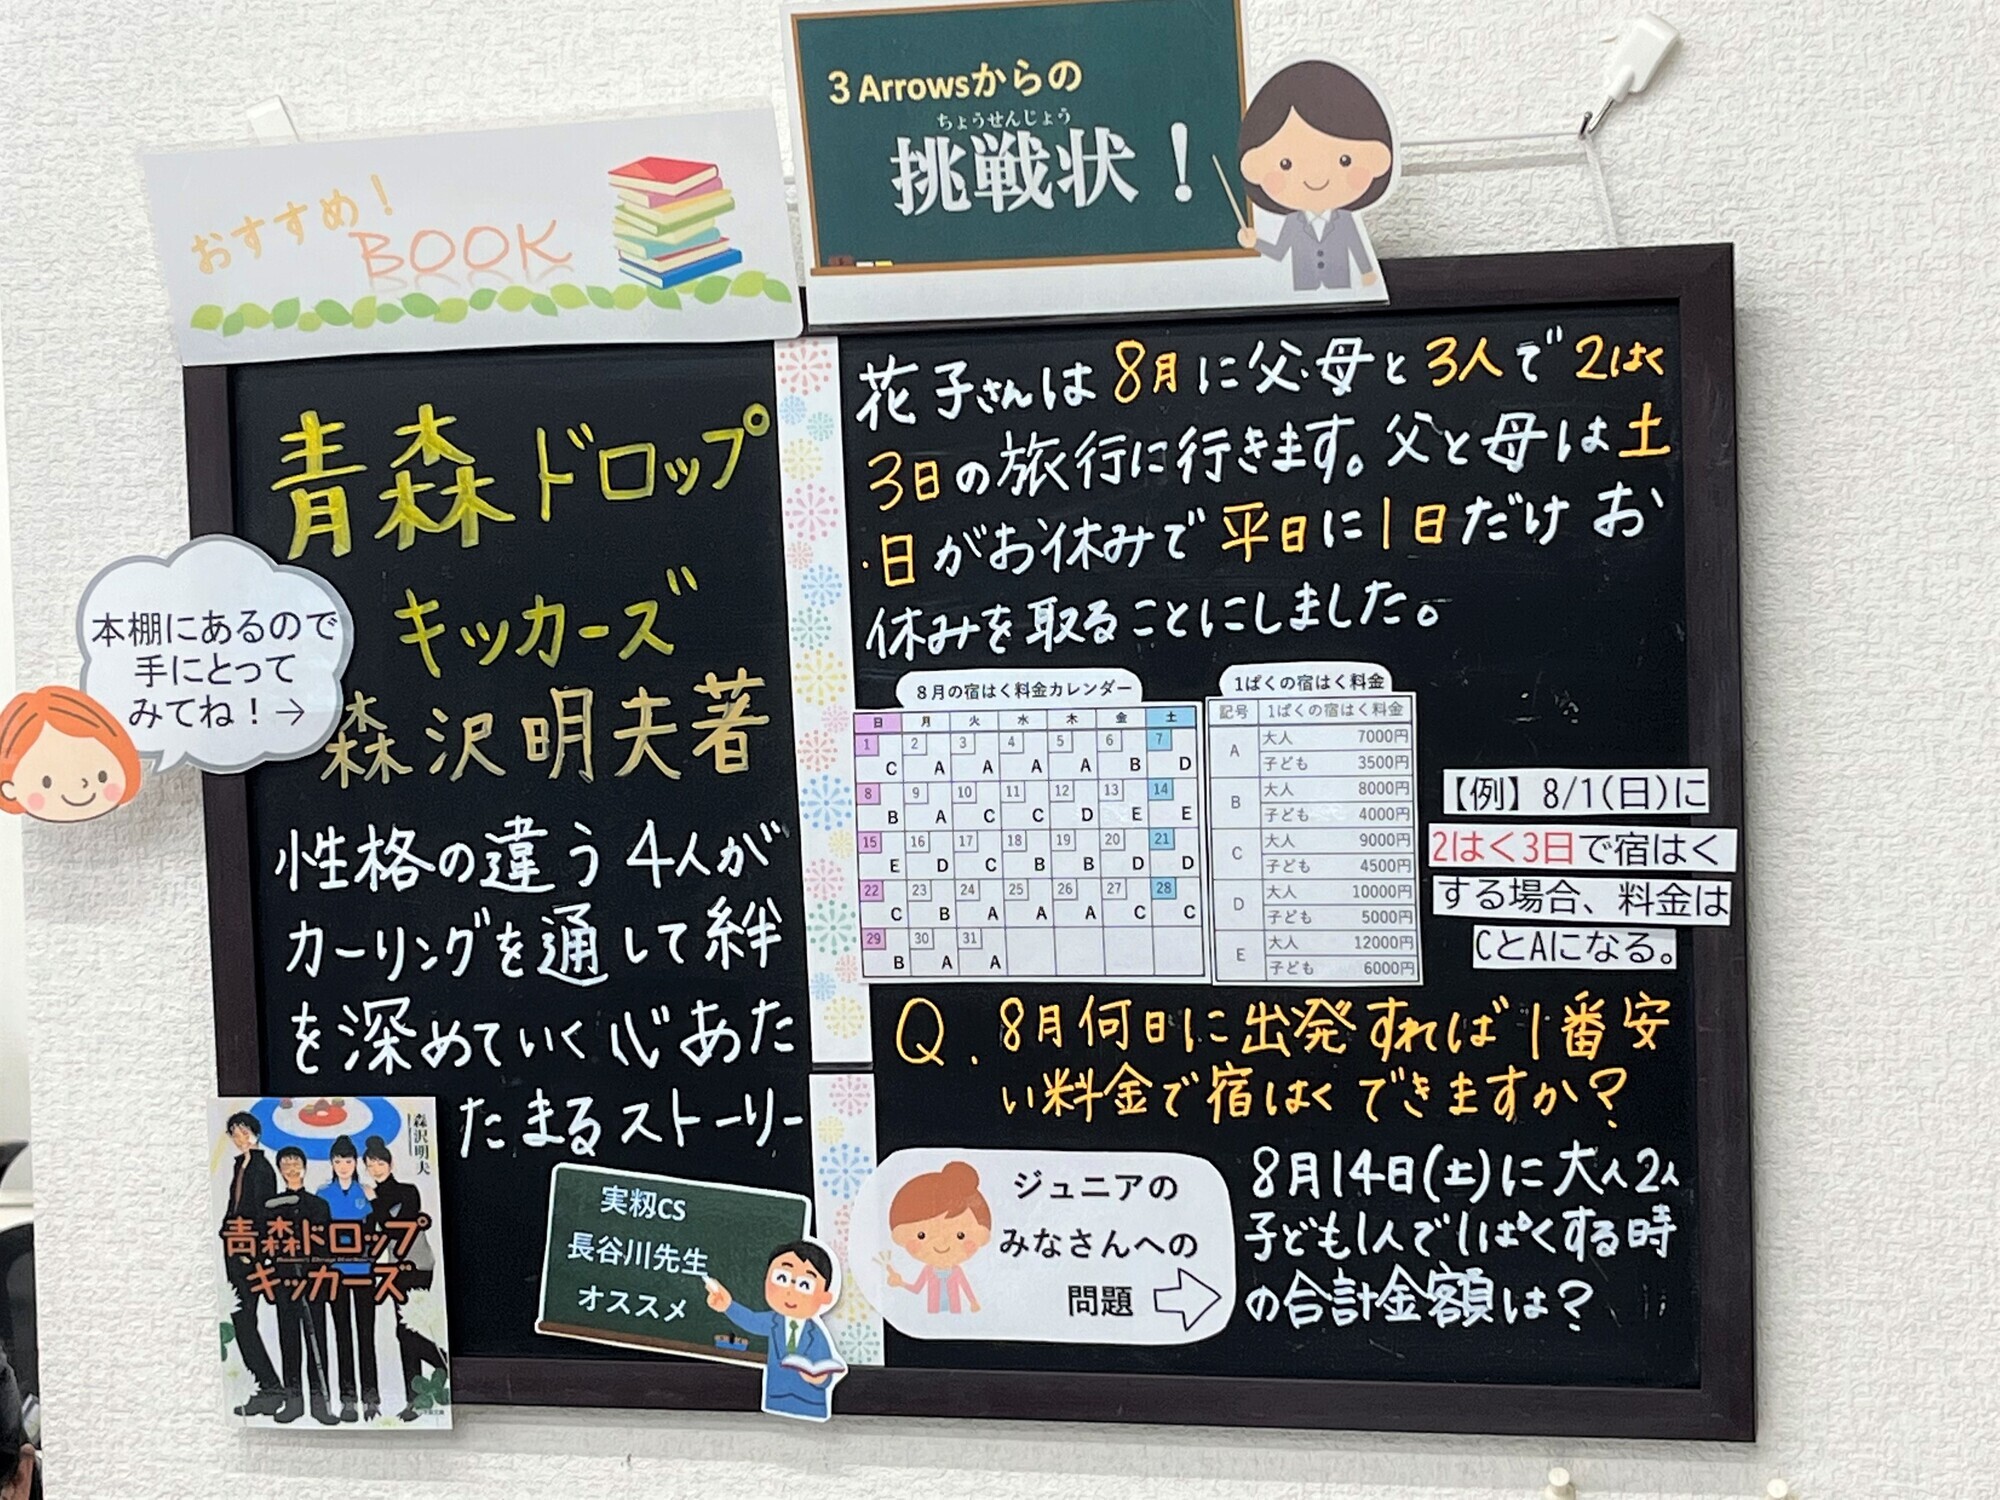 おすすめ！
BOOK
青森ドロップ
キッカーズ
森沢明夫著
本棚にあるので
手にとって
みてね！→
性格の違う4人が
カーリングを通して絆
を深めていく心あた
たまるストーリー
森沢明夫
青森ドロップ
キッカーズ
実籾CS
長谷川先生
オススメ
3 Arrowsからの
ちょうせんじょう
挑戦状！
花子さんは8月に父・母と3人で2はく
3日の旅行に行きます。父と母は土
・日がお休みで平日に1日だけお
休みを取ることにしました。
8月の宿はく料金カレンダー
日 月 火 水 木 金 土
1 2 3 4 5 6 7
C A A A A B D
8 9 10 11 12 13 14
B A C C D E E
15 16 17 18 19 20 21
E D C B B D D
22 23 24 25 26 27 28
C B A A A C C
29 30 31
B A A
1ぱくの宿はく料金
記号 1ぱくの宿はく料金
A 大人 7000円
子ども 3500円
B 大人 8000円
子ども 4000円
C 大人 9000円
子ども 4500円
D 大人 10000円
子ども 5000円
E 大人 12000円
子ども 6000円
【例】8/1(日)に
2はく3日で宿はく
する場合、料金は
CとAになる。
Q. 8月何日に出発すれば1番安
い料金で宿はくできますか？
ジュニアの
みなさんへの
問題
8月14日(土)に大人2人
子ども1人で1ぱくする時
の合計金額は？